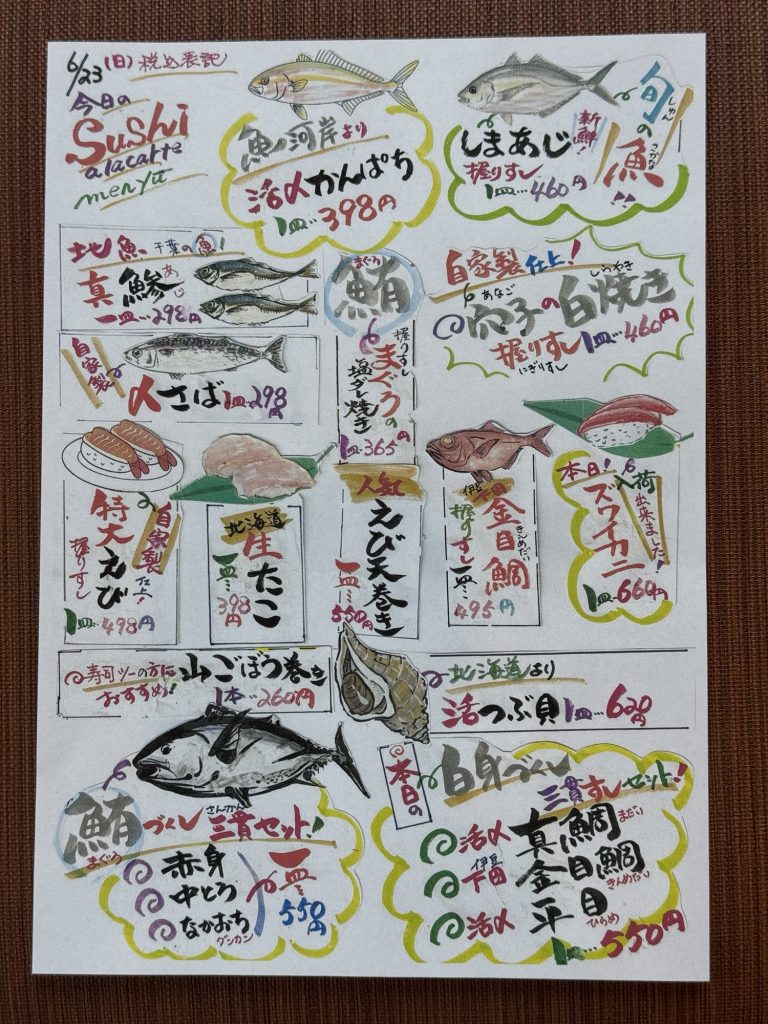 6/23(日) 税込表記
今日の
Sushi
alacarte
menyu
魚河岸より
活〆かんぱち
1皿…398円
旬の魚!!
しゅん
さかな
新鮮!
しまあじ
握りすし
1皿…460円
地魚 千葉の魚!
真鯵
あじ
一皿…298円
自家製
〆さば 1皿…298円
まぐろ
鮪
握りすし
まぐろの
塩ダレ焼き
1皿…365円
自家製仕上!
あなご
しらやき
穴子の白焼き
握りすし 1皿…460円
にぎりすし
自家製仕上!
特大えび
握りすし
1皿…498円
北海道
生たこ
一皿…398円
人気
えび天巻き
一皿…550円
伊豆下田
金目鯛
きんめだい
握りすし
一皿…495円
本日!
入荷出来ました!
ズワイカニ
1皿…660円
寿司ツーの方に
おすすめ!
山ごぼう巻き
1本…260円
北海道より
活つぶ貝 1皿…620円
鮪づくし 三貫セット!
まぐろ
さんかん
赤身
中とろ
なかおち
グンカン
一皿…550円
本日の
白身づくし
三貫すしセット!
活〆 真鯛 まだい
伊豆下田 金目鯛 きんめだい
活〆 平目 ひらめ
1皿…550円